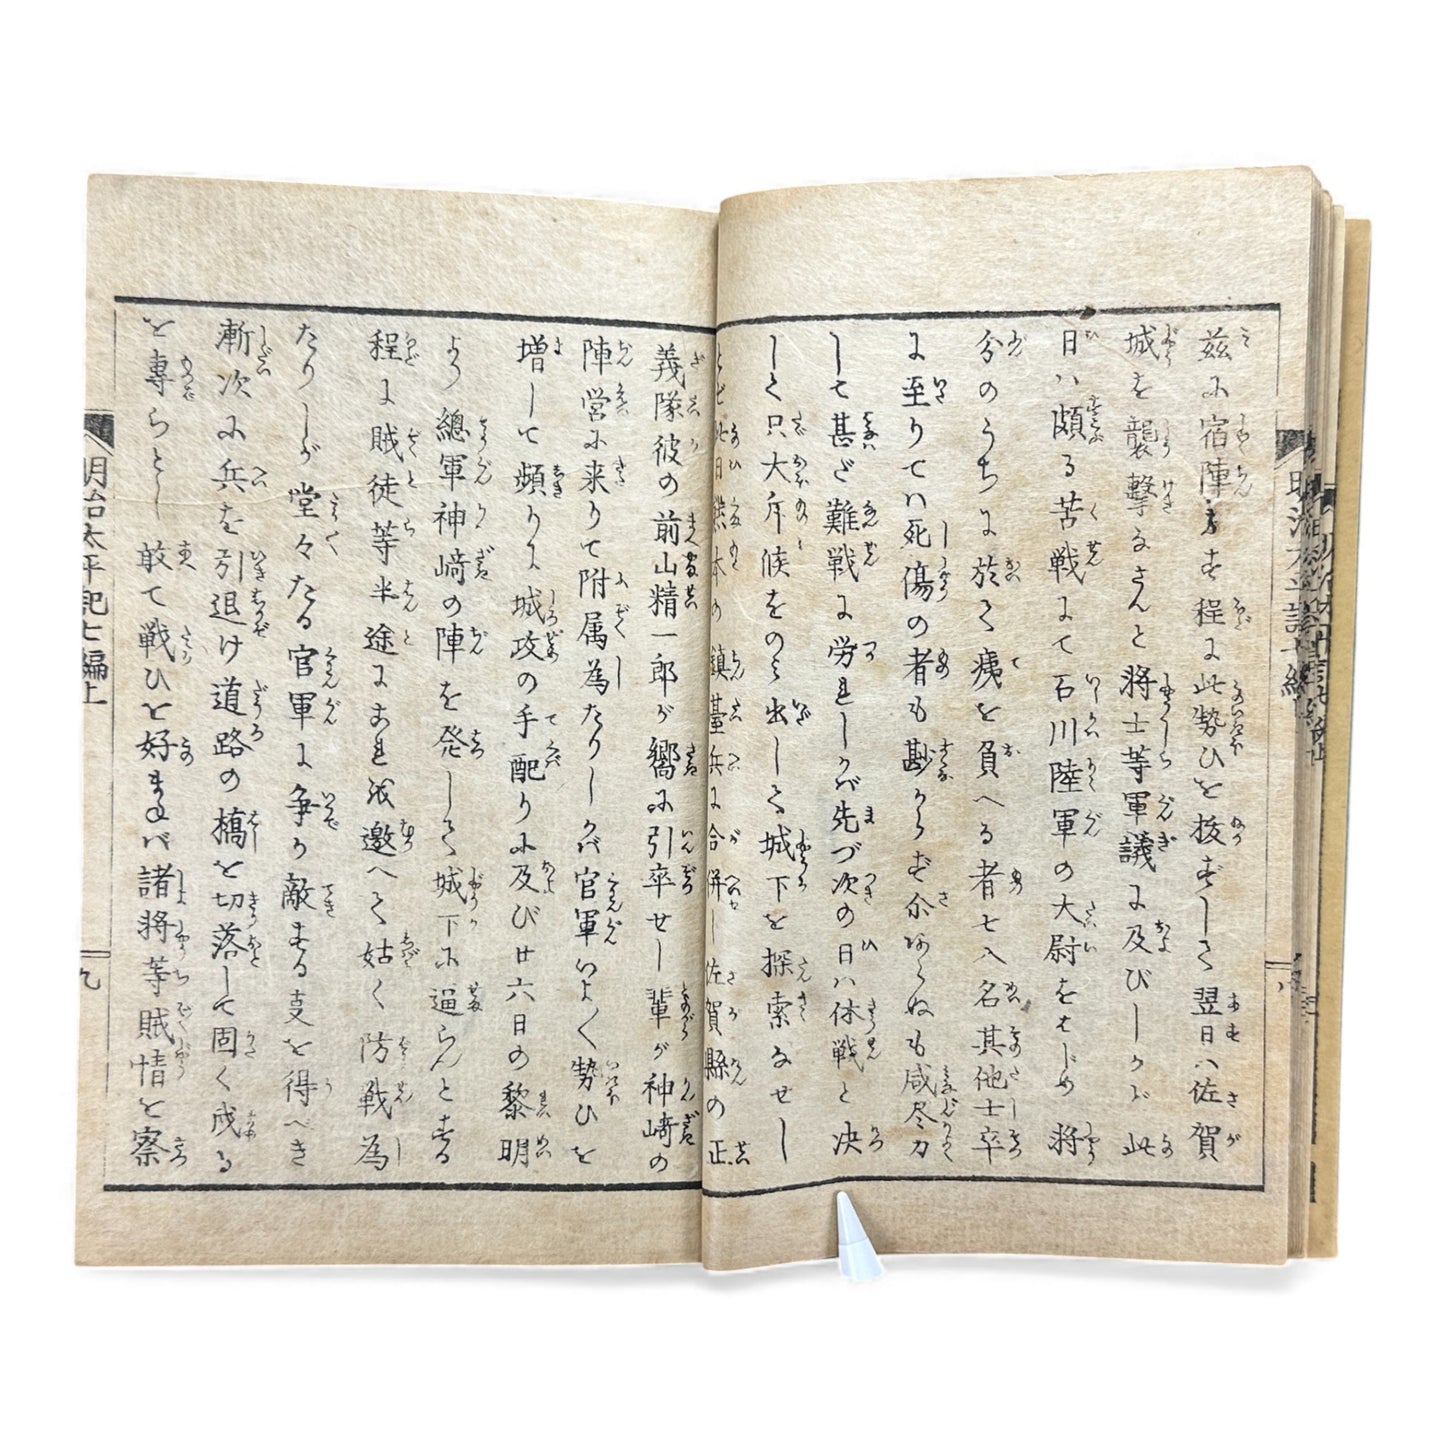 茲に宿陣なす程に此勢ひを抜ずして翌日ハ佐賀
城を襲撃なさんと将士等軍議に及びしかど此
日ハ頗る苦戦にて石川陸軍の大尉をはじめ将
分のうちに於て痍を負へる者七八名其他士卒
に至りてハ死傷の者も尠からず尽力
して甚だ難戦に労れしかバ先づ次の日ハ休戦と决
して只大斥候をのミ出して城下を探索なせし
此日熊本の鎮臺兵に合併し佐賀縣の正
義隊彼の前山精一郎が嚮に引卒せし輩が神﨑の
陣営に来りて附属為たりしかバ官軍いよ〱勢ひを
増して頻りに城攻の手配りに及び廿六日の黎明
より總軍神﨑の陣を発して城下に逼らんとする
程に賊徒等半途にあれ邀へて姑く防戦為
たりしが堂々たる官軍に争か敵する支を得べき
漸次に兵を引退け道路の橋を切落して固く成る
を專らとし敢て戦ひを好まねバ諸将等賊情を察
明治太平記七編上
九